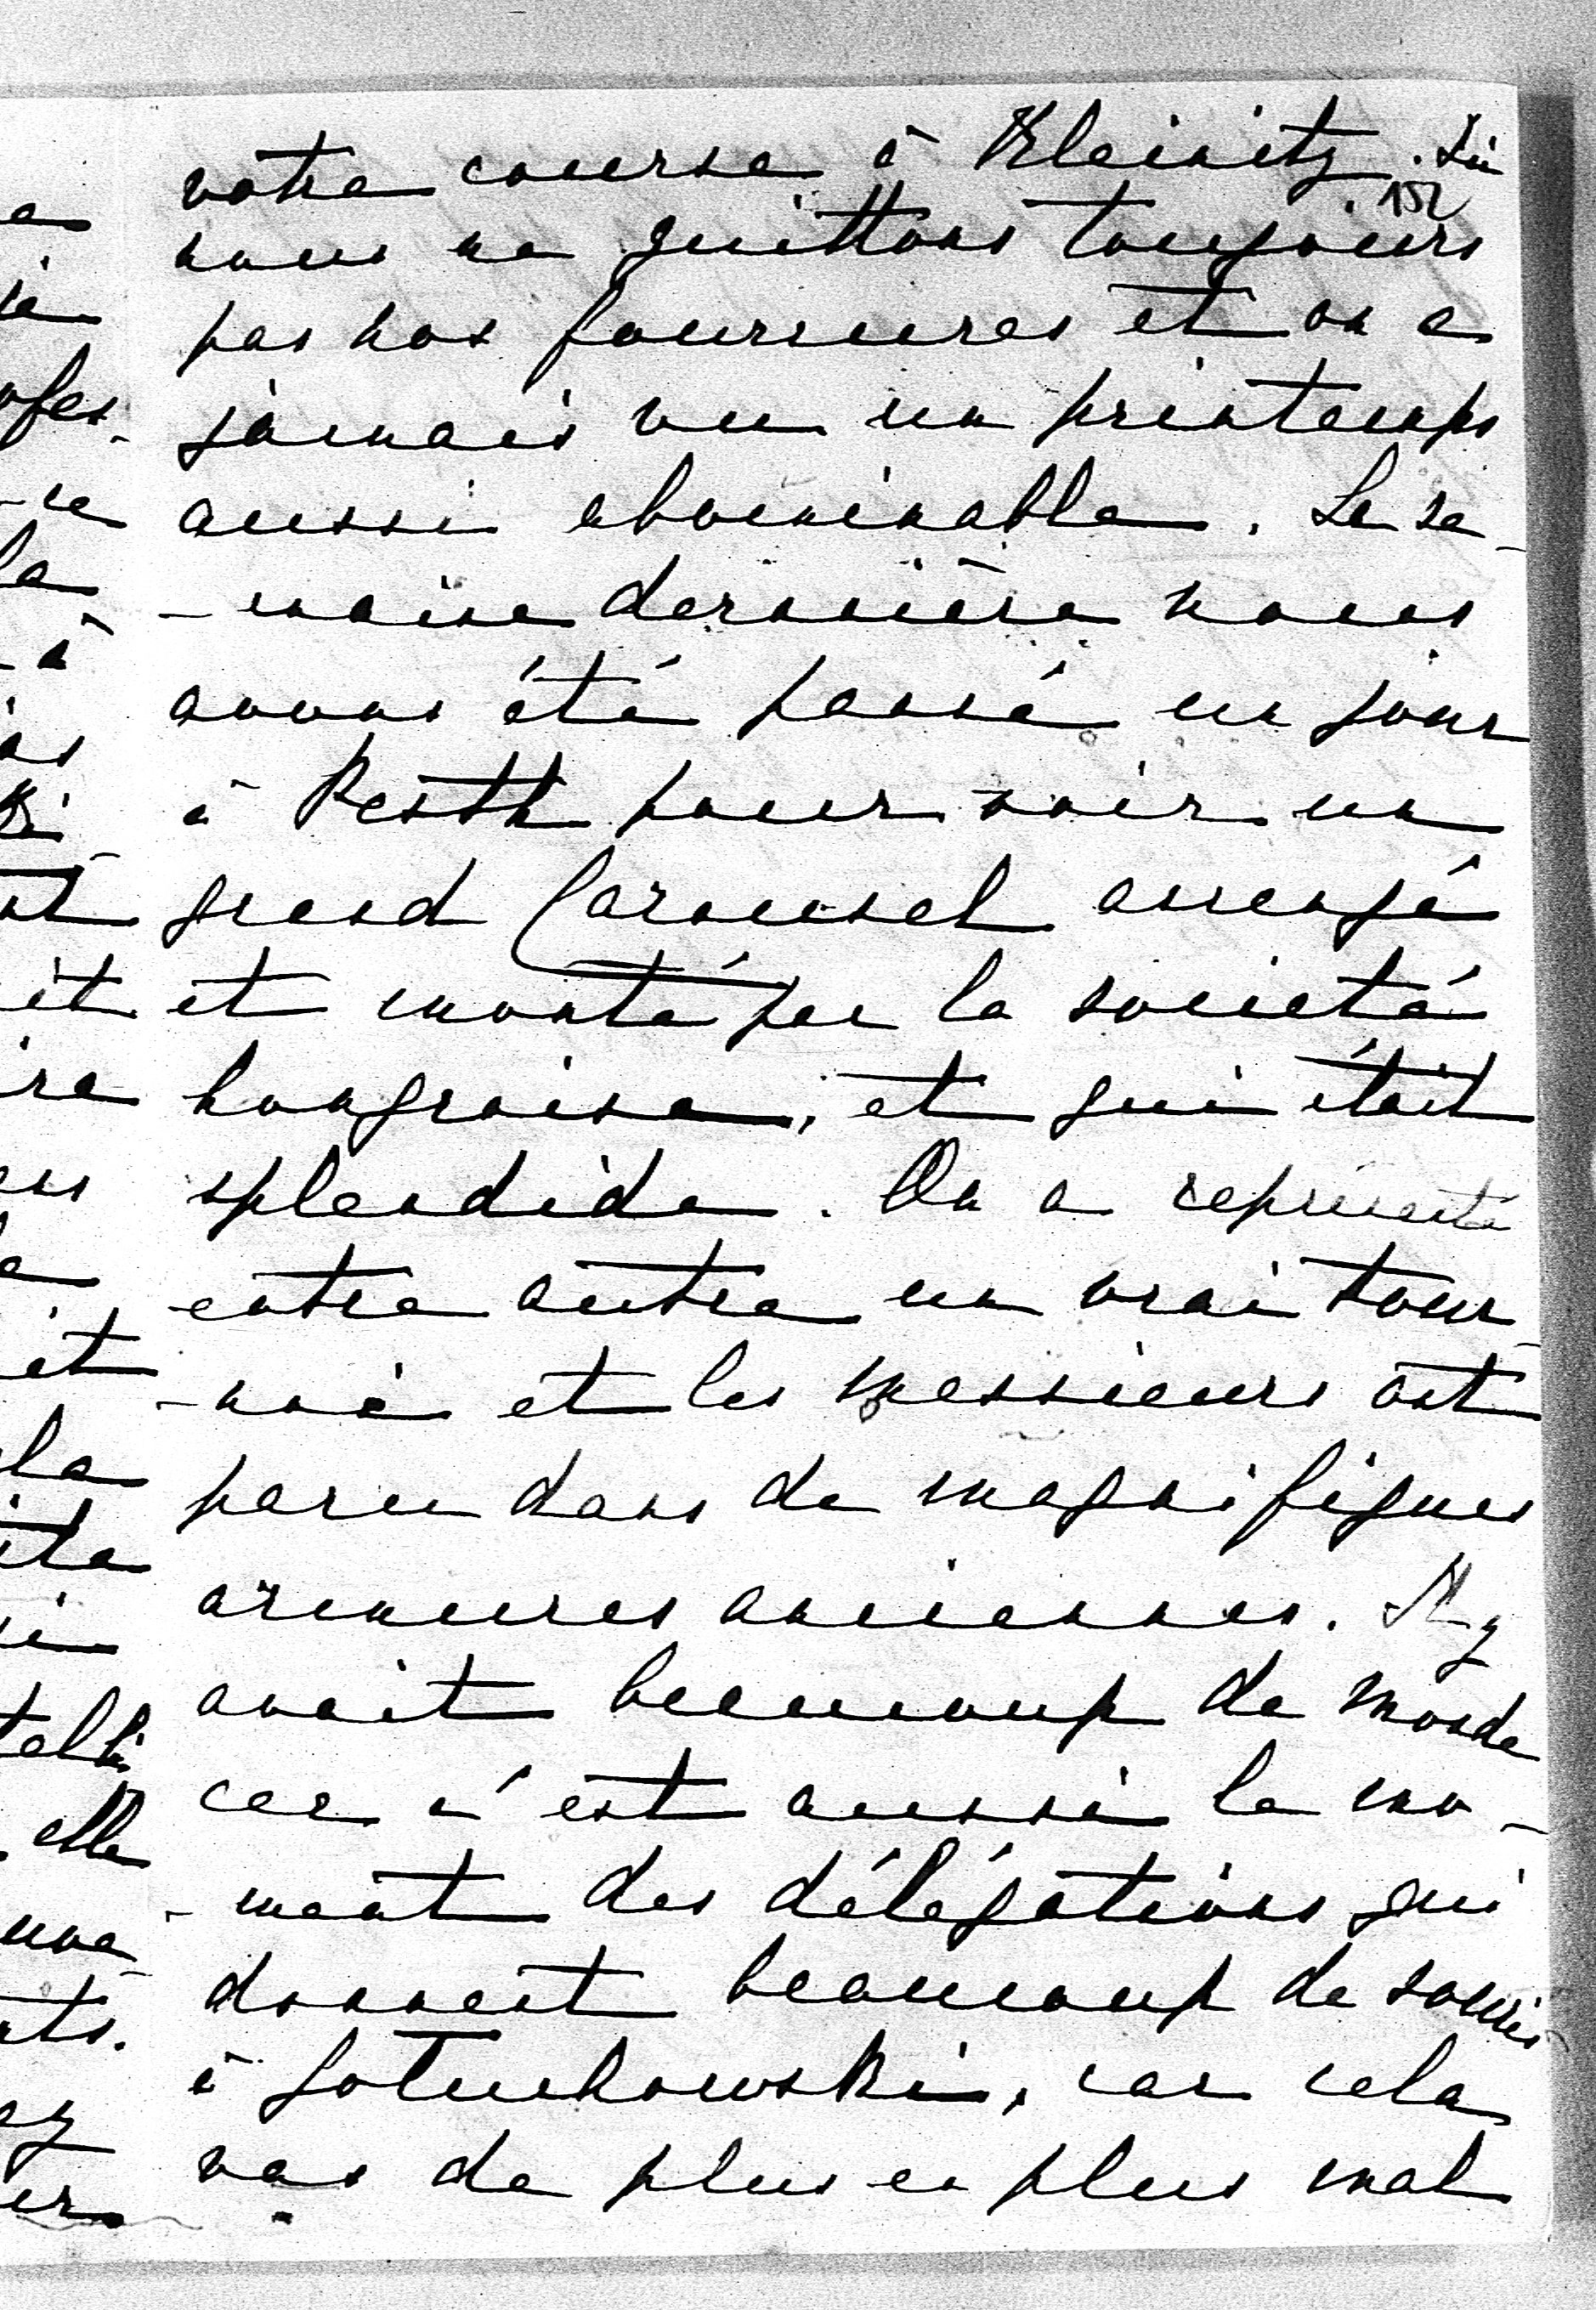 votre course à Kleinitz. Ici
152
nous ne quittons toujours
pas nos fourrures et on a
jamais vu un printemps
aussi abominable. La se-
-maine dernière nous
avons été passé un jour
à Pesth pour voir un
grand Carousel arrangé
et monté par la société
hongroise, et qui était
splendide. On a représenté
entre autre un vrai tour-
-noi et les messieurs ont
paru dans de magnifiques
armures anciennes. Il y
avait beaucoup de monde
car c'est aussi le mo-
-ment des délégations qui
donnent beaucoup de soucis
à Goluchowski, car cela
vas de plus en plus mal